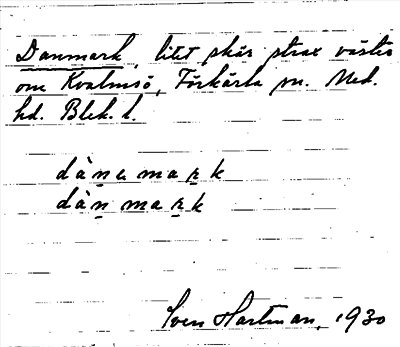 Danmark, litet skär strax väster
om Kvalmsö, Förkärla sn. Med.
hd. Blek. l.
dànamark
dàn mark
Sven Hartman, 1930